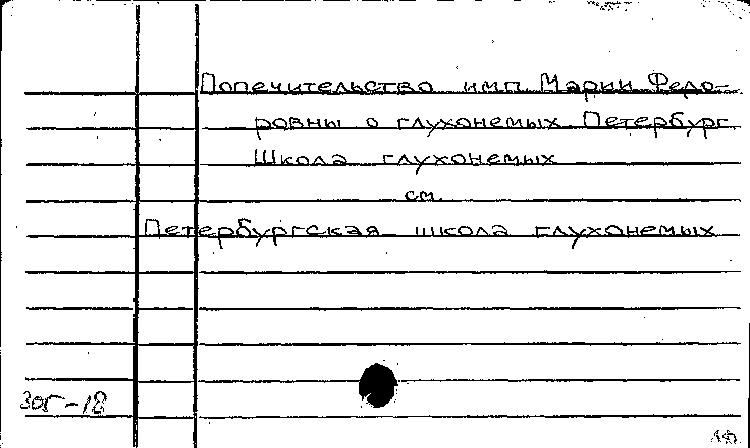 Попечительство имп. Марии Федо-
ровны о глухонемых. Петербург
Школа глухонемых
см.
Петербургская школа глухонемых